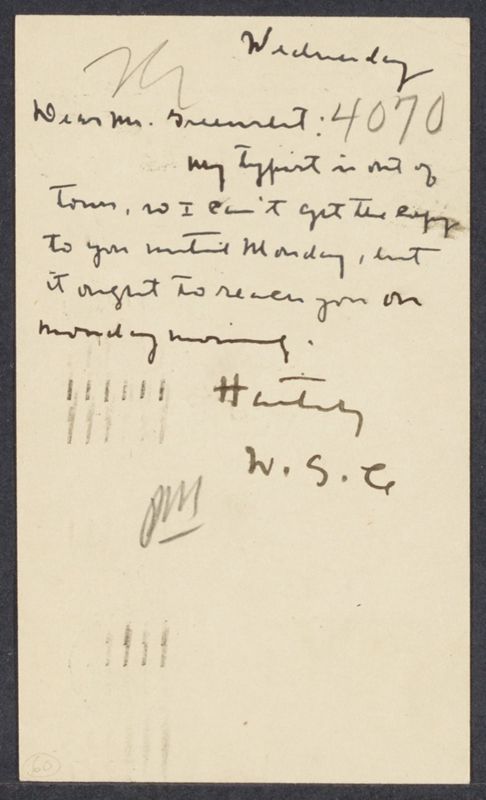 Wednesday
Dear Mr. Greenslet: 4070
My typist is out of
town, so I can't get the copy
to you until Monday, but
it ought to reach you on
Monday morning.
Hastily
W. S. C
60